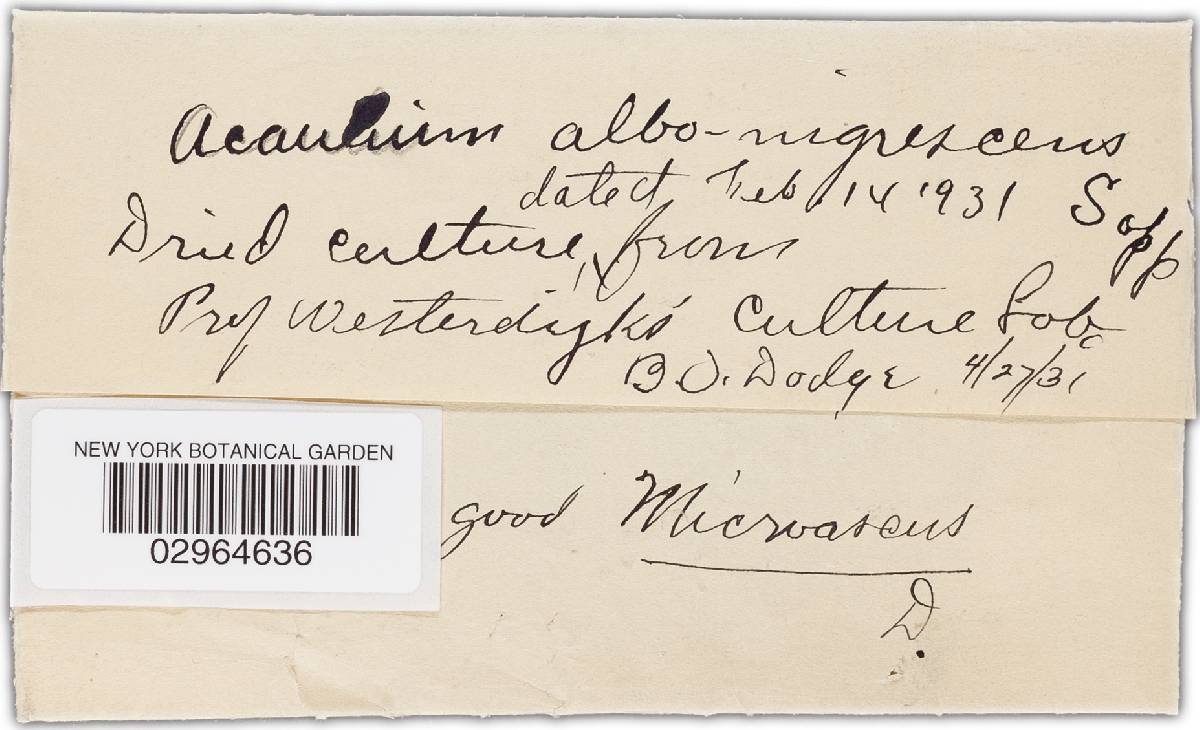 Acaulium albo-nigrescens
Sopp
dated Feb 14 1931
Dried culture, from
Prof Westerdijk's Culture Lab.
B.O. Dodge 4/27/31
NEW YORK BOTANICAL GARDEN
02964636
good Microascus
D.